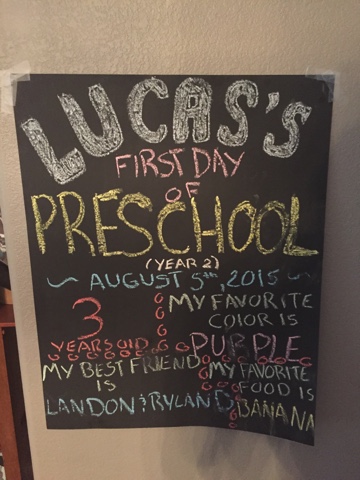 LUCAS'S
FIRST DAY
OF
PRESCHOOL
(YEAR 2)
~ AUGUST 5th, 2015 ~
3
YEARS OLD
MY FAVORITE
COLOR IS
PURPLE
MY BEST FRIEND
IS
LANDON & RYLAND
MY FAVORITE
FOOD IS
BANANA